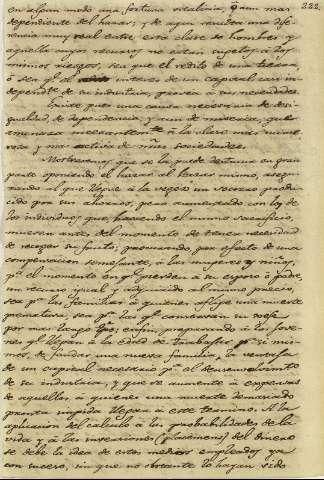 222
en algun modo una fortuna vitalicia, ó aun mas
dependiente del hazar; y de aqui resulta una dife-
rencia muy real entre esta clase de hombres y
aquella cuyos recursos no estan sugetos á los
mismos riesgos, sea que el redito de una tierra,
ó sea que el interes de un capital casi in-
dependte. de su industria, provea á sus necesidades.
Existe pues una causa necesaria de desi-
gualdad, de dependencia y aun de miseria, que
amenaza incesantemte. á la clase mas nume-
rosa y mas activa de ntras sociedades.
Mostraremos que se la puede destruir en gran
parte oponiendo el hazar al hazar mismo, asegu-
rando al que llegue á la vegez un socorro produ-
cido por sus ahorros, pero aumentado con los de
los individuos que, haciendo el mismo sacrificio,
mueren antes del momento de tener necesidad
de recoger su fruto; procurando, por efecto de una
compensacion semejante, á las mugeres y niños,
pa. el momento en qe. pierden á su esposo ó padre,
un recurso igual y adquirido al mismo precio,
sea pa. las familias á quienes aflige una muerte
prematura, sea pa. las qe. conservan su gefe
por mas largo tpo; enfin, preparando á los jove-
nes qe. llegan á la edad de trabajar pr. si mis-
mos, de fundar una nueva familia, la ventaja
de un capital necesario pa. el desenvolvimto
de su industria, y que se aumente á expensas
de aquellos á quienes una muerte demasiado
pronta impida llegar á este termino. A la
aplicacion del calculo á las probabilidades de la
vida y á las inversiones (placemens) del dinero
se debe la idea de estos medios empleados ya
con suceso, sin que no obstante lo hayan sido